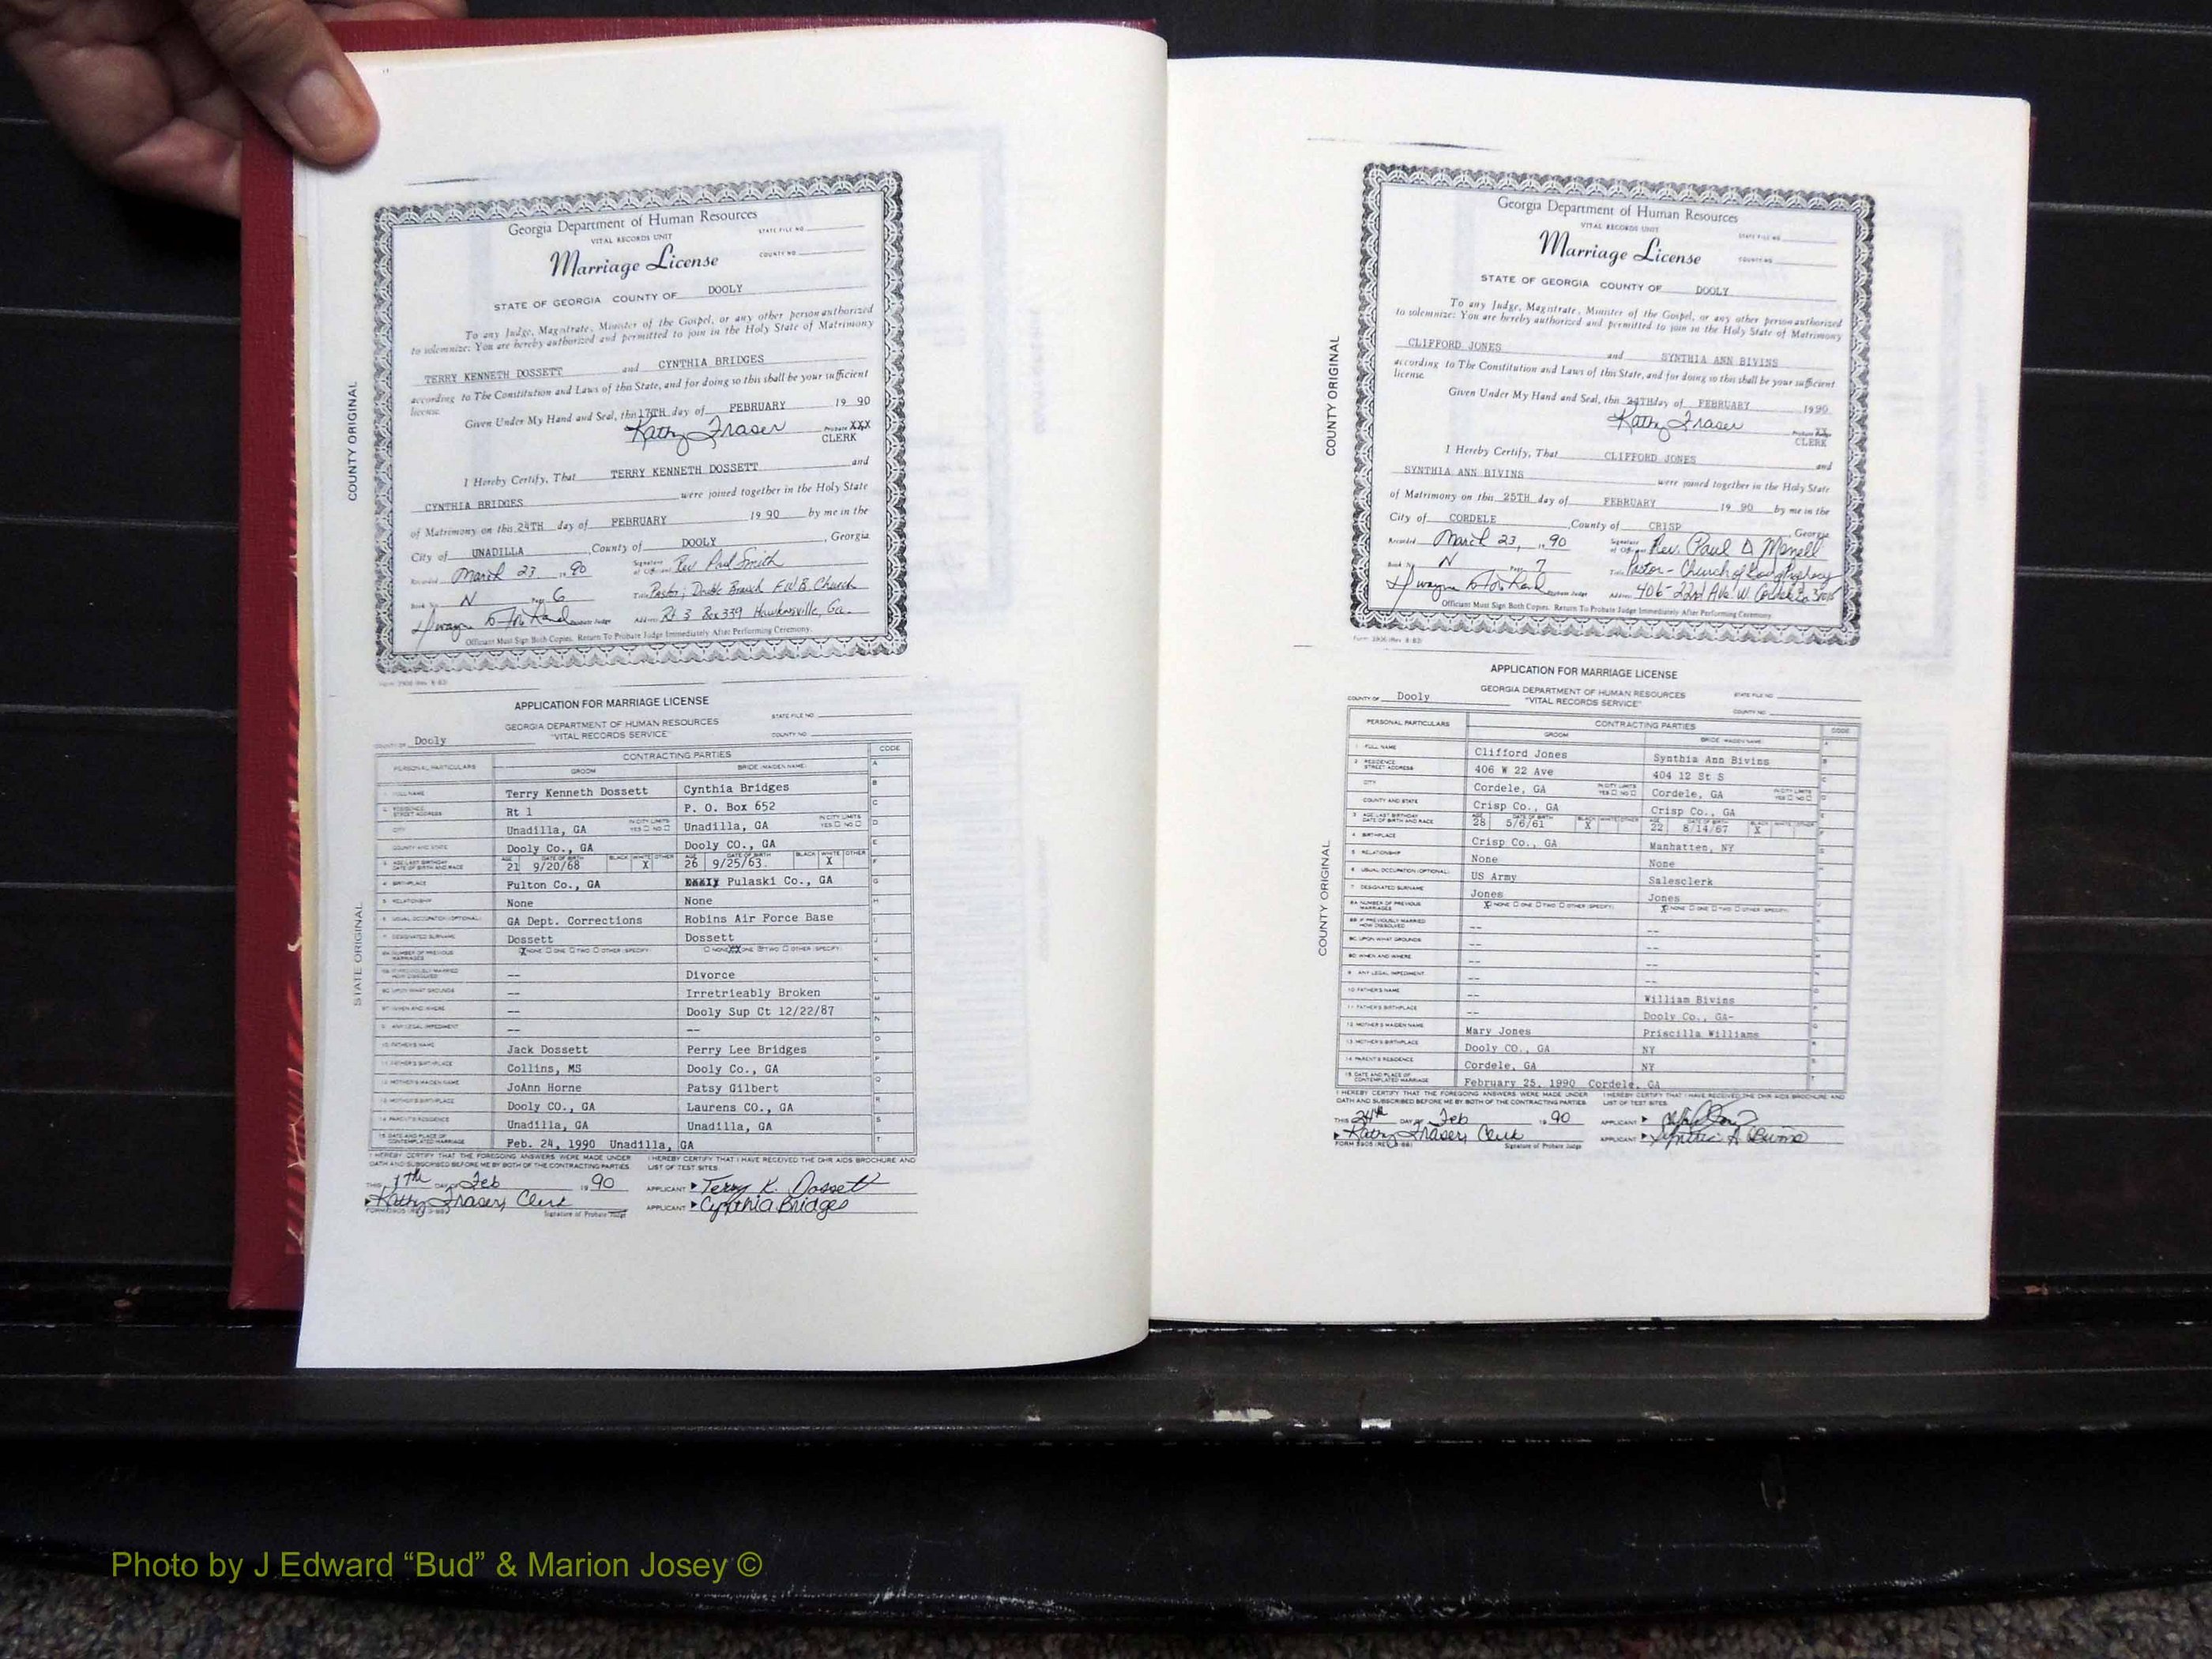 COUNTY ORIGINAL
Georgia Department of Human Resources
VITAL RECORDS UNIT
STATE FILE NO.
Marriage License
COUNTY NO.
STATE OF GEORGIA COUNTY OF DOOLY
To any Judge, Magistrate, Minister of the Gospel, or any other person authorized
to solemnize: You are hereby authorized and permitted to join in the Holy State of Matrimony
TERRY KENNETH DOSSETT and CYNTHIA BRIDGES
according to The Constitution and Laws of this State, and for doing so this shall be your sufficient
license.
Given Under My Hand and Seal, this 17TH day of FEBRUARY 19 90
Kathy Fraser Probate XXX
CLERK
I Hereby Certify, That TERRY KENNETH DOSSETT and
CYNTHIA BRIDGES were joined together in the Holy State
of Matrimony on this 24TH day of FEBRUARY 19 90 by me in the
City of UNADILLA, County of DOOLY, Georgia
Recorded March 23 1990 Signature of Official Rev. Paul Smith
Book No. N Page 6 Title Pastor; Double Branch F.W.B. Church
Probate Judge Address Rt 3 Box 339 Hawkinsville, Ga.
Officiant Must Sign Both Copies. Return To Probate Judge Immediately After Performing Ceremony.
Form 3906 (Rev. 8-83)
STATE ORIGINAL
APPLICATION FOR MARRIAGE LICENSE
GEORGIA DEPARTMENT OF HUMAN RESOURCES STATE FILE NO.
COUNTY OF Dooly "VITAL RECORDS SERVICE" COUNTY NO.
PERSONAL PARTICULARS CONTRACTING PARTIES CODE
GROOM BRIDE (MAIDEN NAME)
1 FULL NAME Terry Kenneth Dossett Cynthia Bridges
2 RESIDENCE STREET ADDRESS Rt 1 P. O. Box 652
CITY Unadilla, GA IN CITY LIMITS YES □ NO □ Unadilla, GA IN CITY LIMITS YES □ NO □
COUNTY AND STATE Dooly Co., GA Dooly CO., GA
3 AGE LAST BIRTHDAY DATE OF BIRTH AND RACE AGE 21 DATE OF BIRTH 9/20/68 BLACK WHITE X OTHER AGE 26 DATE OF BIRTH 9/25/63 BLACK WHITE X OTHER
4 BIRTHPLACE Fulton Co., GA Pulaski Co., GA
5 RELATIONSHIP None None
6 USUAL OCCUPATION (OPTIONAL) GA Dept. Corrections Robins Air Force Base
7 DESIGNATED SURNAME Dossett Dossett
8A NUMBER OF PREVIOUS MARRIAGES X NONE □ ONE □ TWO □ OTHER (SPECIFY) □ NONE XX ONE □ TWO □ OTHER (SPECIFY)
8B IF PREVIOUSLY MARRIED HOW DISSOLVED -- Divorce
8C UPON WHAT GROUNDS -- Irretrieably Broken
8D WHEN AND WHERE -- Dooly Sup Ct 12/22/87
9 ANY LEGAL IMPEDIMENT -- --
10 FATHER'S NAME Jack Dossett Perry Lee Bridges
11 FATHER'S BIRTHPLACE Collins, MS Dooly Co., GA
12 MOTHER'S MAIDEN NAME JoAnn Horne Patsy Gilbert
13 MOTHER'S BIRTHPLACE Dooly CO., GA Laurens CO., GA
14 PARENT'S RESIDENCE Unadilla, GA Unadilla, GA
15 DATE AND PLACE OF CONTEMPLATED MARRIAGE Feb. 24, 1990 Unadilla, GA
I HEREBY CERTIFY THAT THE FOREGOING ANSWERS WERE MADE UNDER I HEREBY CERTIFY THAT I HAVE RECEIVED THE DHR AIDS BROCHURE AND
OATH AND SUBSCRIBED BEFORE ME BY BOTH OF THE CONTRACTING PARTIES. LIST OF TEST SITES.
THIS 17th DAY OF Feb 19 90 APPLICANT Terry K. Dossett
Kathy Fraser, Clerk APPLICANT Cynthia Bridges
Signature of Probate Judge
COUNTY ORIGINAL
Georgia Department of Human Resources
VITAL RECORDS UNIT
STATE FILE NO.
Marriage License
COUNTY NO.
STATE OF GEORGIA COUNTY OF DOOLY
To any Judge, Magistrate, Minister of the Gospel, or any other person authorized
to solemnize: You are hereby authorized and permitted to join in the Holy State of Matrimony
CLIFFORD JONES and SYNTHIA ANN BIVINS
according to The Constitution and Laws of this State, and for doing so this shall be your sufficient
license.
Given Under My Hand and Seal, this 24TH day of FEBRUARY 1990
Kathy Fraser Probate Judge XX
CLERK
I Hereby Certify, That CLIFFORD JONES and
SYNTHIA ANN BIVINS were joined together in the Holy State
of Matrimony on this 25TH day of FEBRUARY 19 90 by me in the
City of CORDELE, County of CRISP, Georgia
Recorded March 23, 1990 Signature of Official Rev. Paul D.
Book No. N Page 7 Title Pastor - Church of God of Prophecy
Probate Judge Address 406-22nd Ave W. Cordele Ga
Officiant Must Sign Both Copies. Return To Probate Judge Immediately After Performing Ceremony
Form 3906 (Rev. 8-83)
COUNTY ORIGINAL
APPLICATION FOR MARRIAGE LICENSE
GEORGIA DEPARTMENT OF HUMAN RESOURCES STATE FILE NO.
COUNTY OF Dooly "VITAL RECORDS SERVICE" COUNTY NO.
PERSONAL PARTICULARS CONTRACTING PARTIES CODE
GROOM BRIDE (MAIDEN NAME)
1 FULL NAME Clifford Jones Synthia Ann Bivins
2 RESIDENCE STREET ADDRESS 406 W 22 Ave 404 12 St S
CITY Cordele, GA IN CITY LIMITS YES □ NO □ Cordele, GA IN CITY LIMITS YES □ NO □
COUNTY AND STATE Crisp Co., GA Crisp Co., GA
3 AGE LAST BIRTHDAY DATE OF BIRTH AND RACE AGE 28 DATE OF BIRTH 5/6/61 BLACK X WHITE OTHER AGE 22 DATE OF BIRTH 8/14/67 BLACK X WHITE OTHER
4 BIRTHPLACE Crisp Co., GA Manhatten, NY
5 RELATIONSHIP None None
6 USUAL OCCUPATION (OPTIONAL) US Army Salesclerk
7 DESIGNATED SURNAME Jones Jones
8A NUMBER OF PREVIOUS MARRIAGES X NONE □ ONE □ TWO □ OTHER (SPECIFY) X NONE □ ONE □ TWO □ OTHER (SPECIFY)
8B IF PREVIOUSLY MARRIED HOW DISSOLVED -- --
8C UPON WHAT GROUNDS -- --
8D WHEN AND WHERE -- --
9 ANY LEGAL IMPEDIMENT -- --
10 FATHER'S NAME -- William Bivins
11 FATHER'S BIRTHPLACE -- Dooly Co., GA-
12 MOTHER'S MAIDEN NAME Mary Jones Priscilla Williams
13 MOTHER'S BIRTHPLACE Dooly CO., GA NY
14 PARENT'S RESIDENCE Cordele, GA NY
15 DATE AND PLACE OF CONTEMPLATED MARRIAGE February 25, 1990 Cordele, GA
I HEREBY CERTIFY THAT THE FOREGOING ANSWERS WERE MADE UNDER I HEREBY CERTIFY THAT I HAVE RECEIVED THE DHR AIDS BROCHURE AND
OATH AND SUBSCRIBED BEFORE ME BY BOTH OF THE CONTRACTING PARTIES. LIST OF TEST SITES.
THIS 24th DAY OF Feb 19 90 APPLICANT
Kathy Fraser, Clerk APPLICANT Synthia A Bivins
Signature of Probate Judge
Photo by J Edward “Bud” & Marion Josey ©